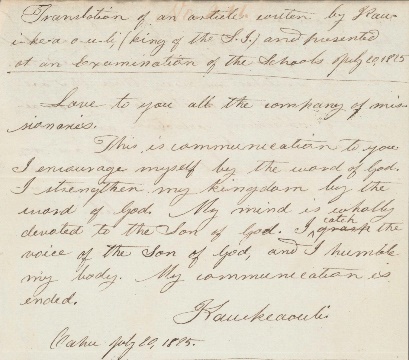 Translation of an article writen by Kau-
i-ke-a-o-u-li, (king of the S.I.) and presented
at an Examination of the Schools July 20, 1825
Love to you all the company of mis-
sionaries.
This is communication to you
I encourage myself by the word of God.
I strengthen my kingdom by the
word of God. My mind is wholly
devoted to the Son of God. I grasp catch the
voice of the Son of God, and I humble
my body. My communication is
ended.
Kauikeaouli
Oahu July 20, 1825.